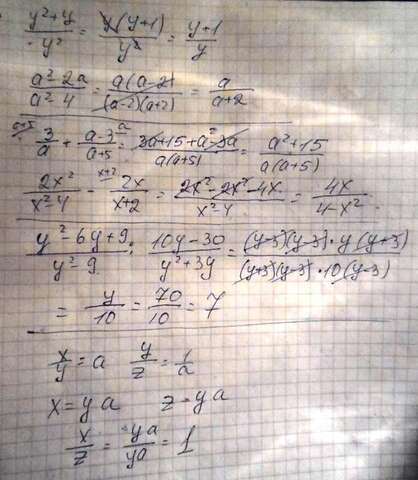 (y²+y)/y² = y(y+1)/y² = (y+1)/y
(a²-2a)/(a²-4) = a(a-2)/((a-2)(a+2)) = a/(a+2)
a+5 3/a + (a-3)/(a+5) a = (3a+15+a²-3a)/(a(a+5)) = (a²+15)/(a(a+5))
2x²/(x²-4) - x+2 2x/(x+2) = (2x²-2x²-4x)/(x²-4) = 4x/(4-x²)
(y²-6y+9)/(y²-9) : (10y-30)/(y²+3y) = ((y-3)(y-3)·y(y+3))/((y+3)(y-3)·10(y-3))
= y/10 = 70/10 = 7
x/y = a y/z = 1/a
x = ya z = ya
x/z = ya/ya = 1